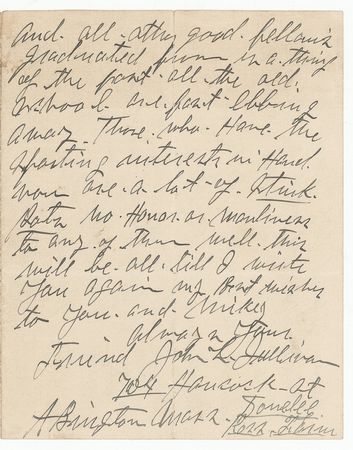 And. all. othe. good. fellows
Graduated from is a. thing
of the past. all the old.
school. are. fast Ebbing
away. Those. who. Have. the
sporting interests in Hand.
now are. a lot. of. Stink.
Pots no. Honor. or. manliness
to any. of them well. this
will be. all. till I write
You again my Best wishes
to You. and. Mike
always Your.
Friend John L. Sullivan
Hancock. St
Abington Mass.